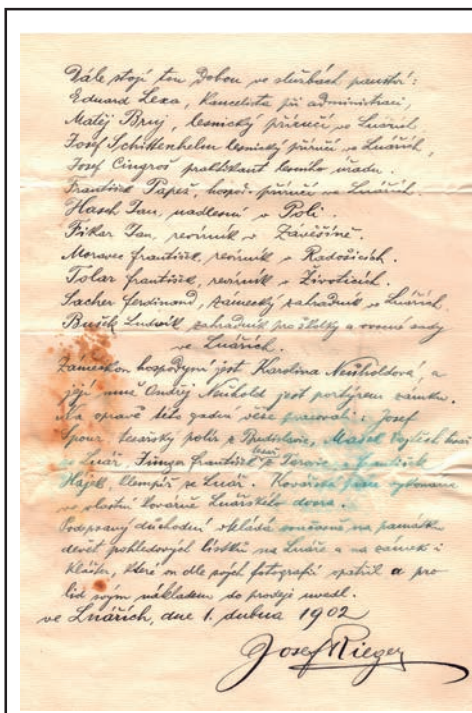 Dále stojí tou dobou ve službách panství:
Eduard Lexa, kancelista při administraci,
Matěj Bruj, lesnický příručí ve Lnářích,
Josef Schittenhelm lesnický příručí ve Lnářích,
Josef Cingroš praktikant lesního úřadu.
František Papež, hospod. příručí ve Lnářích.
Hasch Jan, nadlesní v Poli.
Fikar Jan, revírník v Závěšíně.
Moravec František, revírník v Radošicích.
Tolar František, revírník v Životicích.
Sacher Ferdinand, zámecký zahradník ve Lnářích.
Bušek Ludvík, zahradník pro školky a ovocné sady
ve Lnářích.
Zámeckou hospodyní jest Karolina Neuholdová, a
její muž Ondřej Neuhold jest portýrem zámku.
Na opravě této godní věže pracovali: Josef
Spour, tesařský polír z Budislavic, Mašek Vojtěch tesař
ze Lnář, František tesař z Tarovic, František
Hájek, klempíř ze Lnář. Kovářská práce vykonána
ve vlastní kovárně Lnářského dvora.
Podepsaný důchodní vkládá současně na památku
devět pohledových lístků na Lnáře a na zámek i
klášter, které on dle svých fotografií opatřil a pro
lid svým nákladem do prodeje uvedl.
ve Lnářích, dne 1. dubna 1902
Josef Rieger